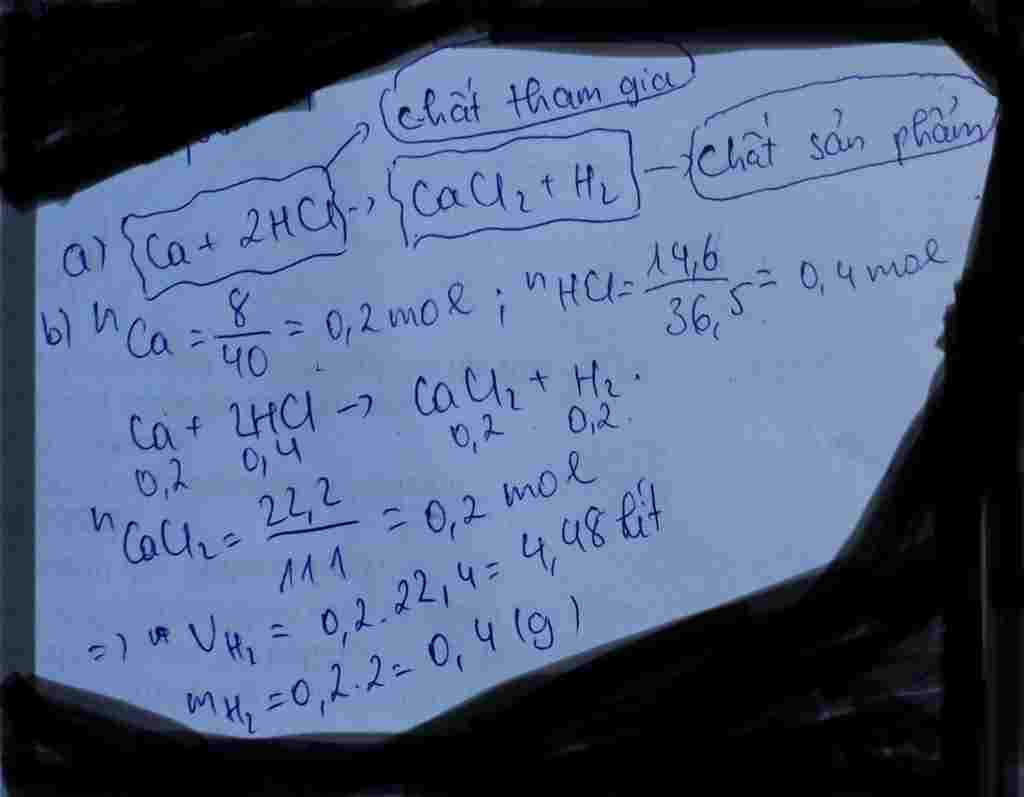 chất tham gia
a) Ca + 2HCl → CaCl₂ + H₂ - chất sản phẩm
b) nCa = 8/40 = 0,2 mol ; nHCl = 14,6/36,5 = 0,4 mol
Ca + 2HCl → CaCl₂ + H₂.
0,2 0,4 0,2 0,2.
nCaCl₂ = 22,2/111 = 0,2 mol
=) VH₂ = 0,2.22,4 = 4,48 lít
mH₂ = 0,2.2 = 0,4 (g)